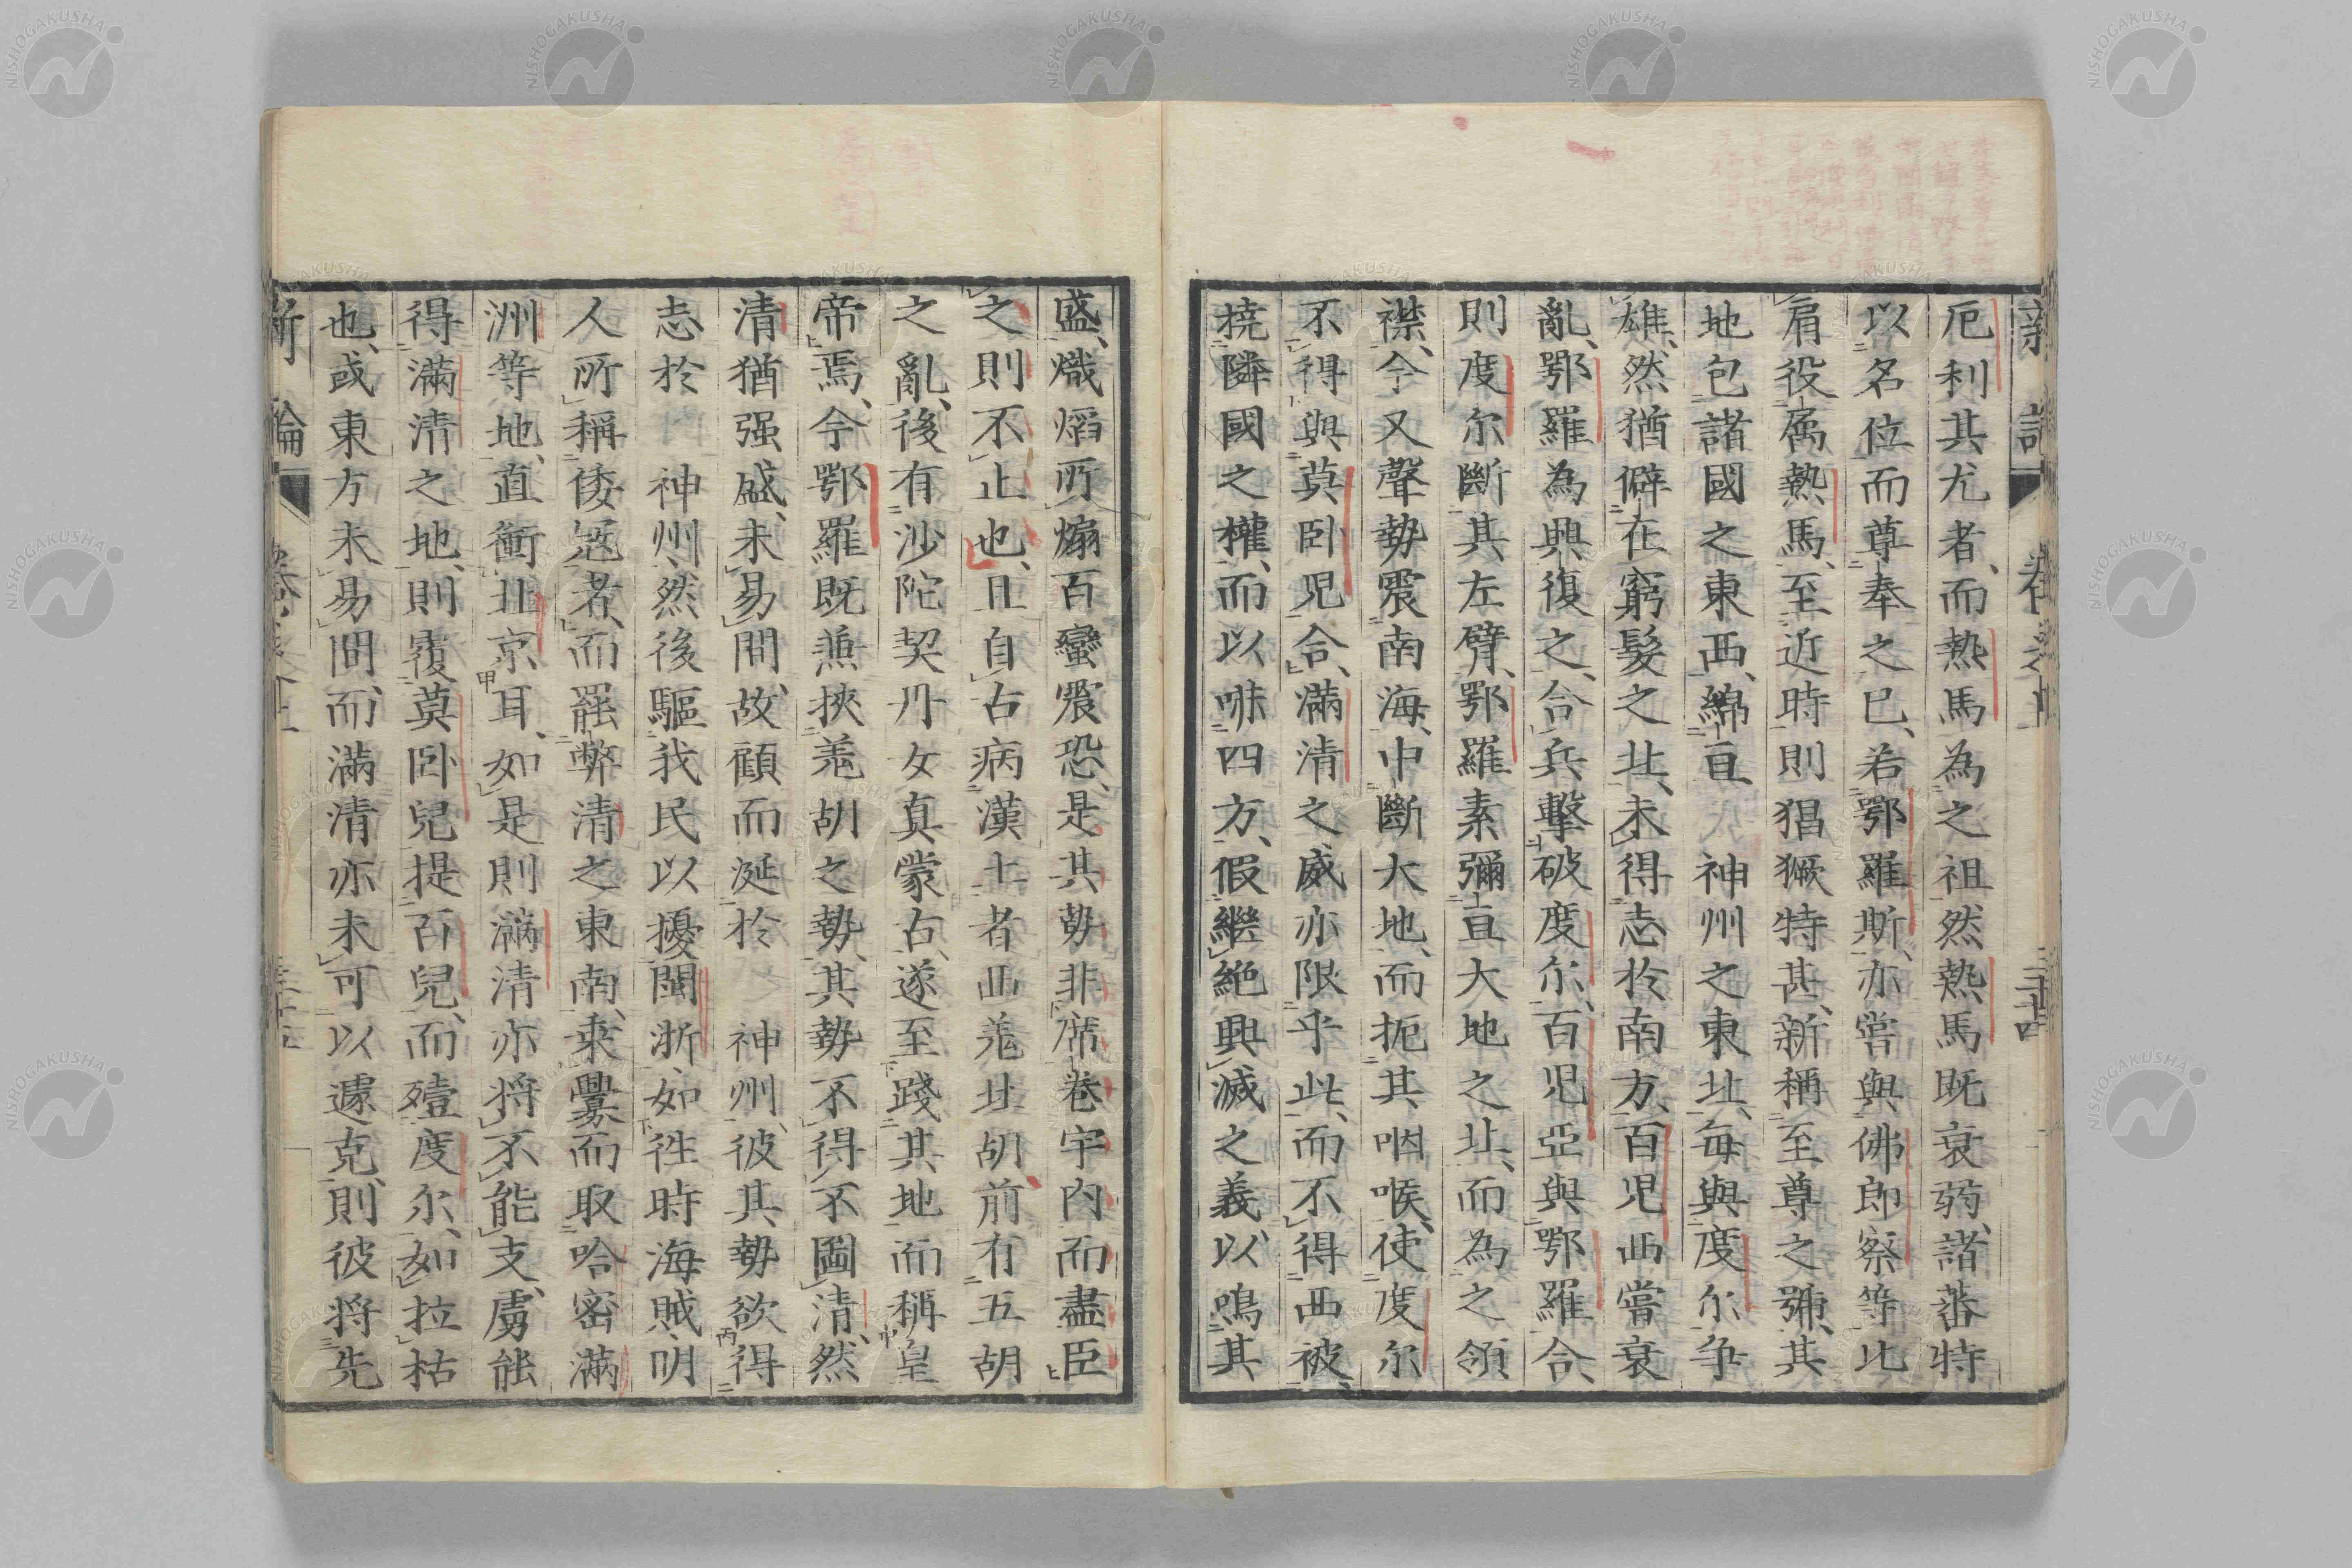 新論
卷之上
三十四
厄利其尤者、而熱馬為之祖、然熱馬既衰弱、諸蕃特
以名位而尊奉之已、若鄂羅斯、亦嘗與佛郎察等比
肩役属熱馬、至近時則猖獗特甚、新稱至尊之號、其
地包諸國之東西、綿亘 神州之東北、毎與度尔争
雄、然猶僻在窮髮之北、未得志於南方、百児西嘗衰
亂、鄂羅為興復之、合兵擊破度尔、百児亞與鄂羅合、
則度尔斷其左臂、鄂羅素彌亘大地之北、而為之領
襟、今又聲勢震南海、中斷大地、而扼其咽喉、使度尔
不得與莫卧児合、滿清之威亦限乎此、而不得西被、
撓隣國之權、而以啉四方、假繼絶興滅之義以鳴其
盛、熾熖所煽百蠻震恐、是其勢非席卷宇内而盡臣
之則不止也、且自古病漢土者西羗北胡、前有五胡
之亂、後有沙陀契丹女真蒙古、遂至踐其地而稱皇
帝焉、今鄂羅既兼挾羗胡之勢、其勢不得不圖清、然
清猶强盛、未易間、故顧而涎於 神州、彼其勢欲得
志於 神州、然後驅我民以擾閩浙、如往時海賊明
人所稱倭冦者、而罷弊清之東南、乘釁而取哈密滿
洲等地、直衝北京耳、如是則滿清亦将不能支、虜能
得滿清之地、則覆莫卧兒提百兒、而殪度尔、如拉枯
也、或東方未易間、而滿清亦未可以遽克、則彼将先
新論
卷之上
三十五
NISHOGAKUSHA